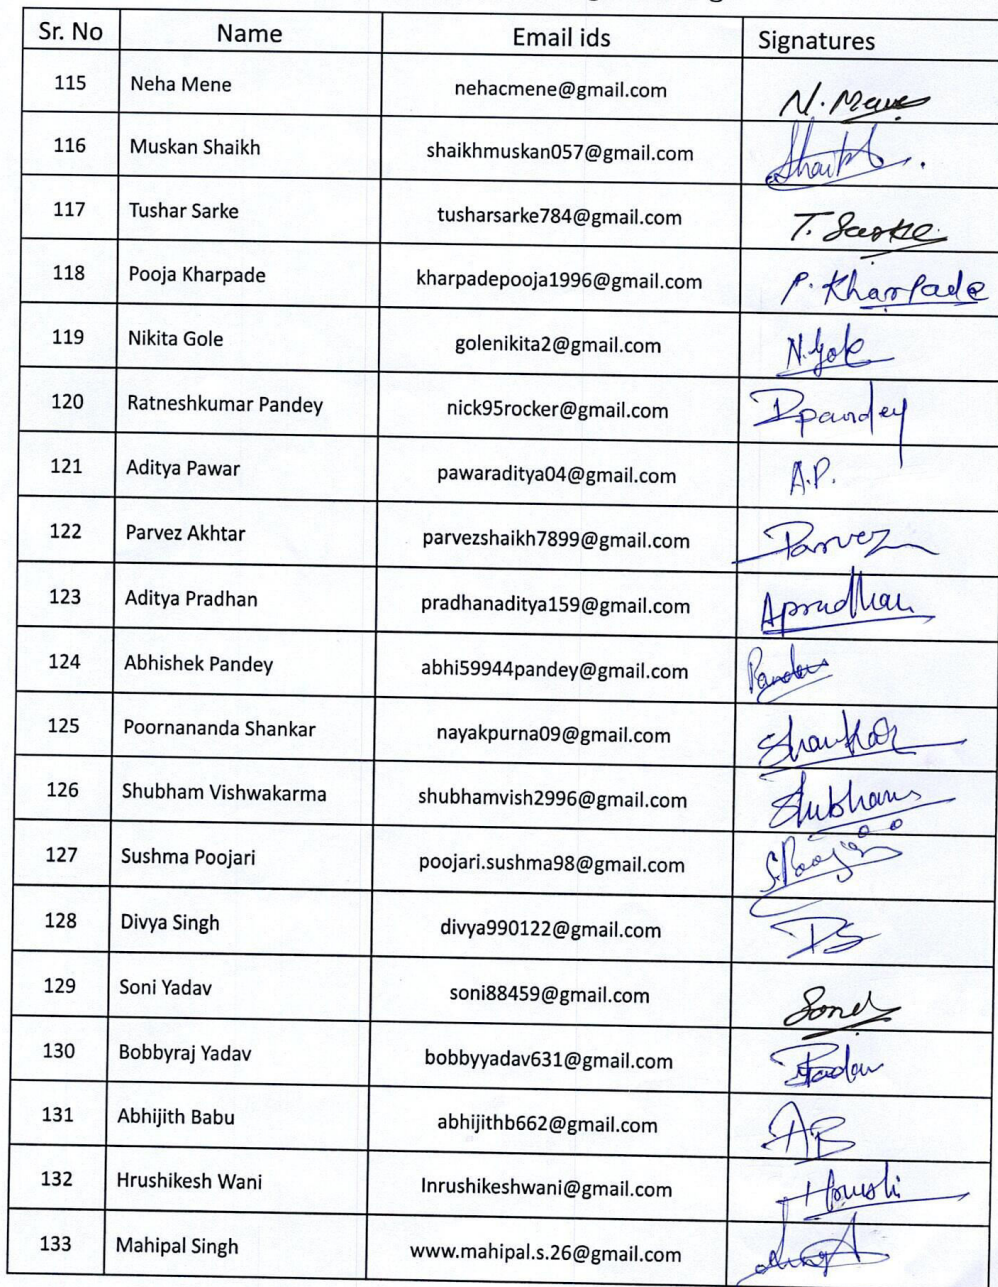 Sr. No Name Email ids Signatures
115 Neha Mene nehacmene@gmail.com N. Mene
116 Muskan Shaikh shaikhmuskan057@gmail.com Shaikh
117 Tushar Sarke tusharsarke784@gmail.com T. Sarke
118 Pooja Kharpade kharpadepooja1996@gmail.com P. Kharpade
119 Nikita Gole golenikita2@gmail.com N. Gole
120 Ratneshkumar Pandey nick95rocker@gmail.com pandey
121 Aditya Pawar pawaraditya04@gmail.com A.P.
122 Parvez Akhtar parvezshaikh7899@gmail.com Parvez
123 Aditya Pradhan pradhanaditya159@gmail.com Apradhan
124 Abhishek Pandey abhi59944pandey@gmail.com
125 Poornananda Shankar nayakpurna09@gmail.com Shankar
126 Shubham Vishwakarma shubhamvish2996@gmail.com Shubham
127 Sushma Poojari poojari.sushma98@gmail.com S.Poojari
128 Divya Singh divya990122@gmail.com DS
129 Soni Yadav soni88459@gmail.com Soni
130 Bobbyraj Yadav bobbyyadav631@gmail.com
131 Abhijith Babu abhijithb662@gmail.com AB
132 Hrushikesh Wani Inrushikeshwani@gmail.com Hrushi
133 Mahipal Singh www.mahipal.s.26@gmail.com